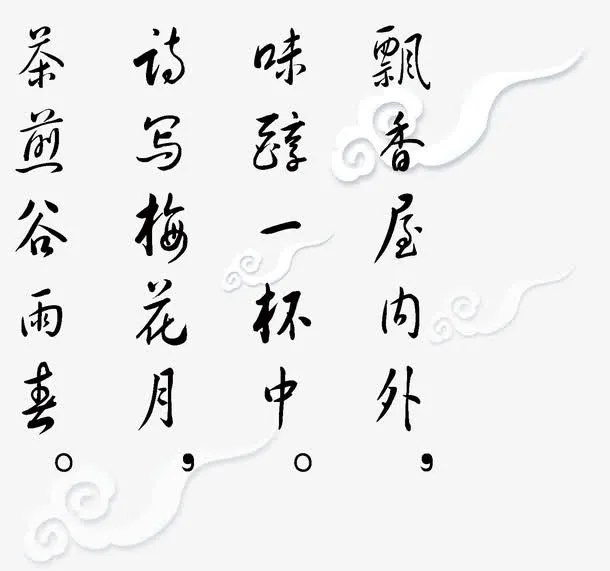 飘香屋内外，
味醇一杯中。
诗写梅花月，
茶煎谷雨春。